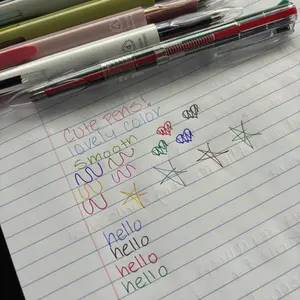 Cute pens!
lovely color
Smooth
hello
hello
hello
hello